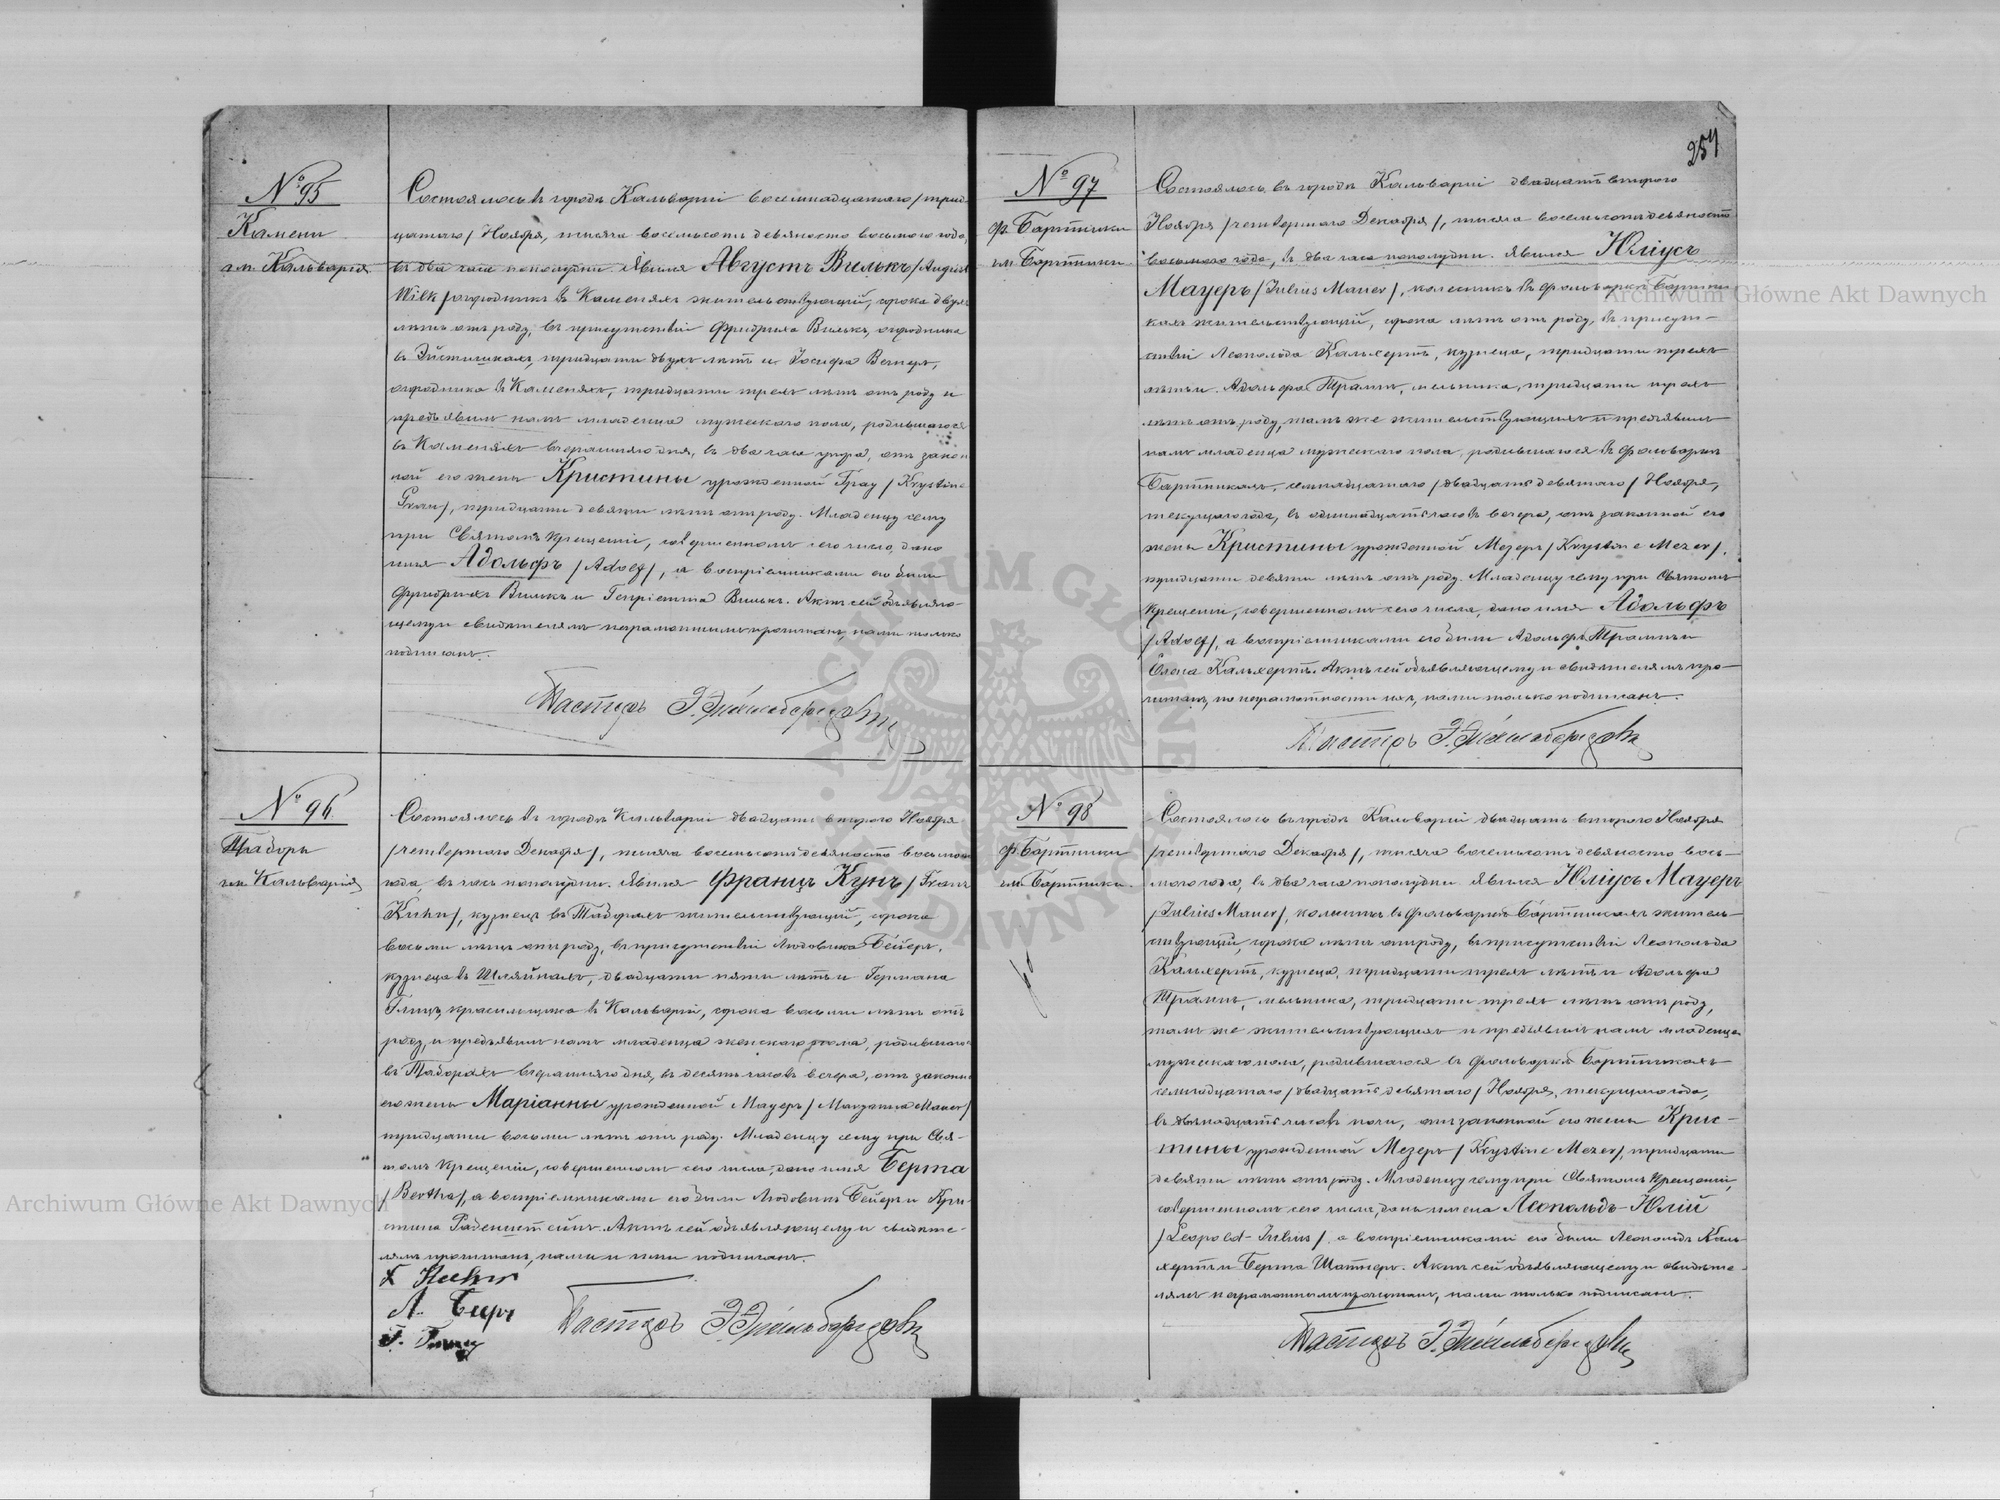 № 95
Камени
гм. Кальварія
Состоялось въ городѣ Кальваріи восемнадцатаго /трид-
цатаго/ Ноября, тысяча восемьсотъ девяносто восьмого года,
въ два часа пополудни. Явился Августъ Вилькъ /August
Wilk/ огородникъ въ Каменяхъ жительствующій, сорока двухъ
лѣтъ отъ роду, въ присутствіи Фридриха Вилькъ, огородника
въ тридцати двухъ лѣтъ и Іосифа
огородника въ Каменяхъ, тридцати трехъ лѣтъ отъ роду и
предъявилъ намъ младенца мужескаго пола, родившагося
въ Каменяхъ вчерашняго дня, въ два часа утра, отъ закон-
ной его жены Кристины урожденной Грау /Krystine
Grau/, тридцати девяти лѣтъ отъ роду. Младенцу сему
при Святомъ Крещеніи, совершенномъ сего числа, дано
имя Адольфъ /Adolf/, а воспріемниками его были
Фридрихъ Вилькъ и Генріетта Вилькъ. Актъ сей объявляю-
щему и свидѣтелямъ неграмотнымъ прочитанъ, нами только
подписанъ.
Пасторъ
№ 96
Таборы
гм. Кальварія
Состоялось въ городѣ Кальваріи двадцать второго Ноября
/четвертаго Декабря/, тысяча восемьсотъ девяносто восьмого
года, въ часъ пополудни. Явился Францъ Кунъ /Franz
Kuhn/, кузнецъ въ Таборахъ жительствующій, сорока
восьми лѣтъ отъ роду, въ присутствіи Людовика Бейеръ,
кузнеца въ двадцати пяти лѣтъ и Германа
Глицъ, красильщика въ Кальваріи, сорока восьми лѣтъ отъ
роду, и предъявилъ намъ младенца женскаго пола, родившагося
въ Таборахъ вчерашняго дня, въ десять часовъ вечера, отъ законной
его жены Маріанны урожденной Мауеръ /Maryanna Mauer/
тридцати восьми лѣтъ отъ роду. Младенцу сему при Свя-
томъ Крещеніи, совершенномъ сего числа, дано имя Берта
/Bertha/, а воспріемниками его были Людовикъ Бейеръ и Кри-
стина Актъ сей объявляющему и свидѣте-
лямъ прочитанъ, нами и ими подписанъ.
Kuhn
Л.
Г.
Пасторъ
257
№ 97
ф. Бартники
гм. Бартники
Состоялось въ городѣ Кальваріи двадцать второго
Ноября /четвертаго Декабря/, тысяча восемьсотъ девяносто
восьмого года, въ два часа пополудни. Явился Юліусъ
Мауеръ /Julius Mauer/, колесникъ въ фольваркѣ Бартни-
кахъ жительствующій, сорока лѣтъ отъ роду, въ присут-
ствіи Леопольда Кальхертъ, кузнеца, тридцати трехъ
лѣтъ и Адольфа Трампъ, мельника, тридцати трехъ
лѣтъ отъ роду, тамъ же жительствующихъ и предъявилъ
намъ младенца мужескаго пола, родившагося въ фольваркѣ
Бартникахъ, семнадцатаго /двадцать девятаго/ Ноября,
текущаго года, въ одиннадцать часовъ вечера, отъ законной его
жены Кристины урожденной Мезеръ /Krystine Mezer/,
тридцати девяти лѣтъ отъ роду. Младенцу сему при Святомъ
Крещеніи, совершенномъ сего числа, дано имя Адольфъ
/Adolf/, а воспріемниками его были Адольфъ Трампъ и
Елена Кальхертъ. Актъ сей объявляющему и свидѣтелямъ про-
читанъ, по неграмотности ихъ, нами только подписанъ.
Пасторъ
№ 98
ф. Бартники
гм. Бартники.
Состоялось въ городѣ Кальваріи двадцать второго Ноября
/четвертаго Декабря/, тысяча восемьсотъ девяносто вось-
мого года, въ два часа пополудни. Явился Юліусъ Мауеръ
/Julius Mauer/, колесникъ въ фольваркѣ Бартникахъ житель-
ствующій, сорока лѣтъ отъ роду, въ присутствіи Леопольда
Кальхертъ, кузнеца, тридцати трехъ лѣтъ и Адольфа
Трампъ, мельника, тридцати трехъ лѣтъ отъ роду,
тамъ же жительствующихъ и предъявилъ намъ младенца
мужескаго пола, родившагося въ фольваркѣ Бартникахъ
семнадцатаго /двадцать девятаго/ Ноября, текущаго года,
въ двѣнадцать часовъ ночи, отъ законной его жены Крис-
тины урожденной Мезеръ /Krystine Mezer/, тридцати
девяти лѣтъ отъ роду. Младенцу сему при Святомъ Крещеніи,
совершенномъ сего числа, даны имена Леопольдъ-Юлій
/Leopold-Julius/, а воспріемниками его были Леопольдъ Каль-
хертъ и Берта Шаттеръ. Актъ сей объявляющему и свидѣте-
лямъ неграмотнымъ прочитанъ, нами только подписанъ.
Пасторъ
Archiwum Główne Akt Dawnych
Archiwum Główne Akt Dawnych
ARCHIWUM GŁÓWNE AKT DAWNYCH